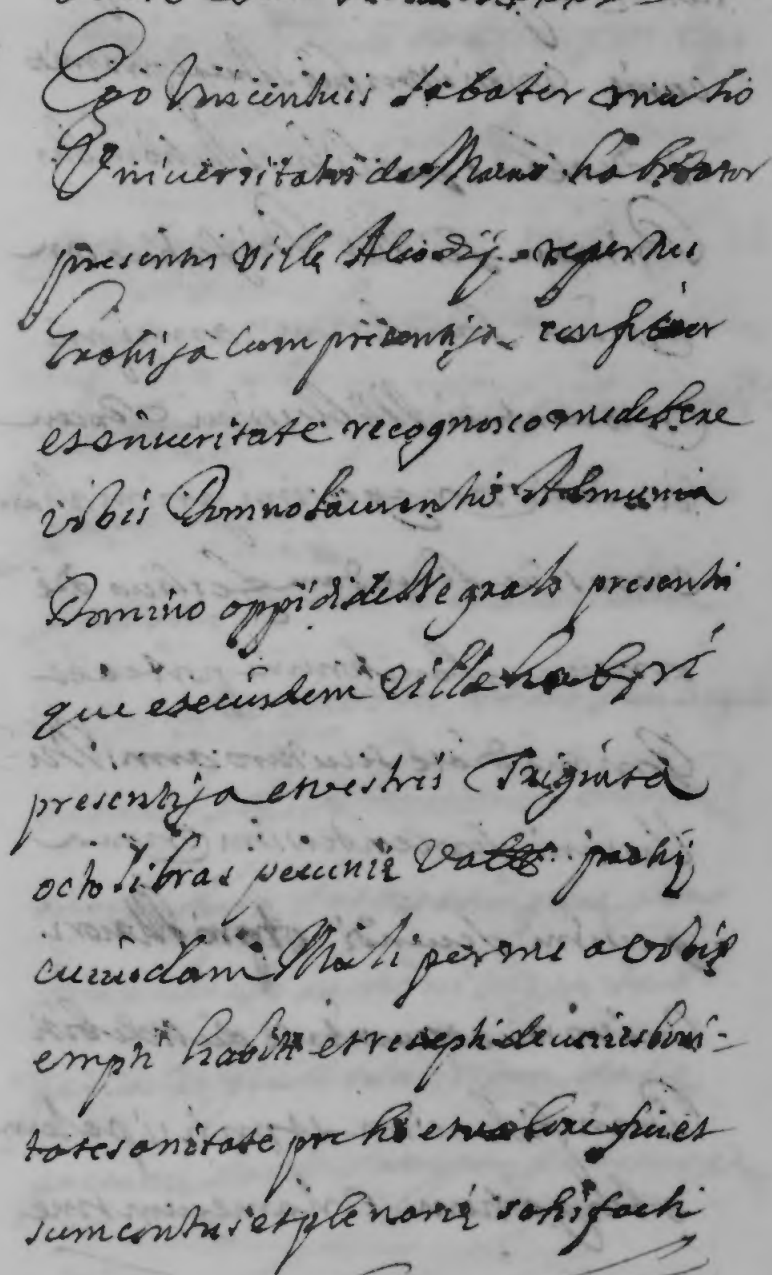 Ego Vincentius sabater
Vniuersitatis de habitator
presentis ville Alcodij repertus
cum presentija confiteor
et in ueritate recognosco me debere
vobis Domno laurentio Almunia
Domino oppidi de presenti
que eiusdem ville habri
presentija et vestris Triginta
octo libras pecunię Vall pretij
cuiusdam Muli per me a vobis
empti habiti et recepti de cuius boni-
tate sanitate pretio et valore fui et
sum contentus et plenarię satisfacti